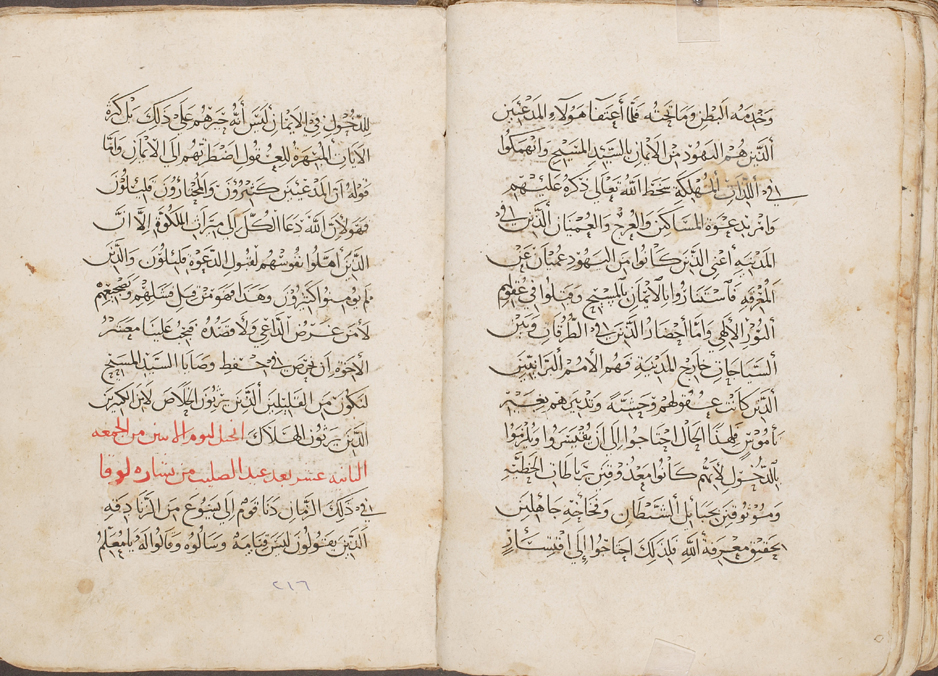 وخدمة البطن وما تحته فلما أعتفا هولاء المدعيين
الذين هم اليهود من الايمان بالسيد المسيح وانهمكوا
في اللذات المهلكة سخط الله تعالي ذكره عليهم
وامر بدعوة المساكين والعرج والعميان الذين في
المدينة أعني الذين كانوا من اليهود عميان عن
المعرفة فاستنازوا بالايمان بالمسيح وقبلوا في عقولهم
النور الالهي واما احضار الذين في الطرقات وبين
السياجات خارج المدينة فهم الأمم البرانيين
الذين كانت عقولهم وحشية وتدبيرهم بغير
ناموس فلهذا الحال احتاجوا إلى أن يقتسروا ويلزموا
بالدخول لانهم كانوا معذوقين برباطات الخطية
وموثوقين بحبايل الشيطان وفخاخه جاهلين
بحقيق معرفة الله فلذلك احتاجوا إلى اقتسار
للدخول في الايمان ليس أنه جبرهم على ذلك بل كثرة
الايات المبهرة للعقول اضطرتهم إلى الايمان وأما
قوله أن المدعيين كثيرون والمختارون قليلون
فهو لان الله دعا الكل إلى ميراث الملكوت إلا ان
الذين اهلوا نفوسهم لقبول الدعوه قليلون والذين
لم يومنوا اكثيرون وهذا فهو من قبل فشلهم وتضجيعهم
لا من غرض الداعي ولا قصده فيجب علينا معشر
الأخوه ان نحرص في حفظ وصايا السيد المسيح
لنكون من القليلين الذين يرثون الخلاص لا من الكثيرين
الذين يرثون الهلاك انجيل ليوم الاثنين من الجمعه
الثامنه عشر بعد عيد الصليب من بشاره لوقا
في ذلك الزمان دنا قوم إلى يسوع من الزنادقه
الذين يقولون ليس قيامة وسالوه وقالوا له يا معلم
٢١٦